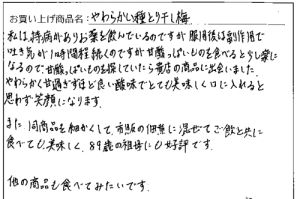 お買い上げ商品名：やわらかい種とり干し梅
私は、持病がありお薬を飲んでいるのですが服用後は副作用で
吐き気が1時間程続くのですが甘酸っぱいものを食べると少し楽に
なるので、甘酸っぱいものを探していたら貴店の商品に出会いました。
やわらかく甘過ぎずほど良い酸味でとても美味しく口に入れると
思わず笑顔になります。
また、同商品を細かくして、市販の佃煮に混ぜてご飯と共に
食べても、美味しく、89歳の祖母にも好評です。
他の商品も食べてみたいです。